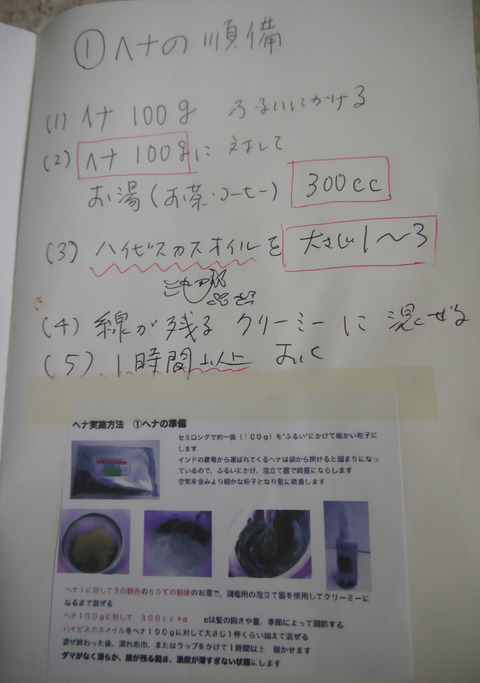 ① ヘナの順備
(1) ヘナ 100g ふるいにかける
(2) ヘナ 100gに 対して
お湯(お茶・コーヒー) 300cc
(3) ハイビスカスオイルを 大さじ1〜3
(4) 線が残る クリーミーに 混ぜる
(5) 1時間以上 おく
ヘナ実施方法 ①ヘナの準備
セミロングで約一袋(100g)を"ふるい"にかけて細かい粒子に
します
インドの農場から運ばれてくるヘナは袋から開けると固まりになっ
ているので、ふるいにかけ、泡立て器で綺麗にならします
空気を含みより細かな粒子となり髪に吸着します
ヘナ1に対して3の割合の60℃の前後のお湯で、調整用の泡立て器を使用してクリーミーに
なるまで混ぜる
ヘナ100gに対して、300cc+α αは髪の長さや量、季節によって調節する
ハイビスカスオイルをヘナ100gに対して大さじ1杯くらい加えて混ぜる
混ぜ終わった後、濡れ布巾、またはラップをかけて1時間以上 寝かせます
ダマがなく滑らか、線が残る固さ、濃度が薄すぎない状態にします